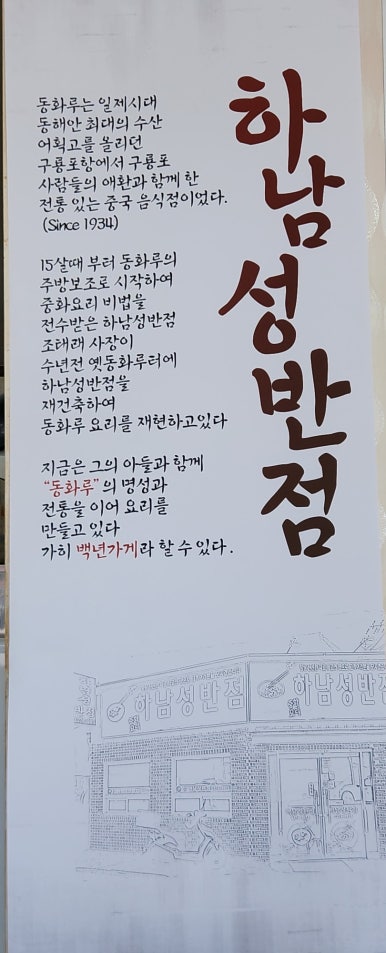 하남성반점
동화루는 일제시대
동해안 최대의 수산
어획고를 올리던
구룡포항에서 구룡포
사람들의 애환과 함께 한
전통 있는 중국 음식점이었다.
(Since 1934)
15살때 부터 동화루의
주방보조로 시작하여
중화요리 비법을
전수받은 하남성반점
조태래 사장이
수년전 옛동화루터에
하남성반점을
재건축하여
동화루 요리를 재현하고있다
지금은 그의 아들과 함께
"동화루"의 명성과
전통을 이어 요리를
만들고 있다
가히 백년가게라 할 수 있다.
하남성반점
하남성반점